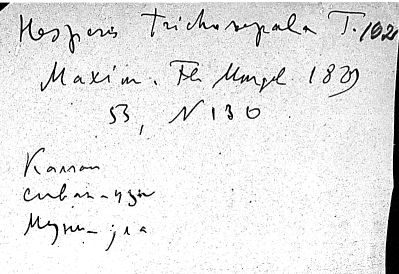 Hesperis trichosepala T. 102
Maxim. Fl. Mongol 1889
53, N 130
Калган
сиван-цзы
Муни-ула